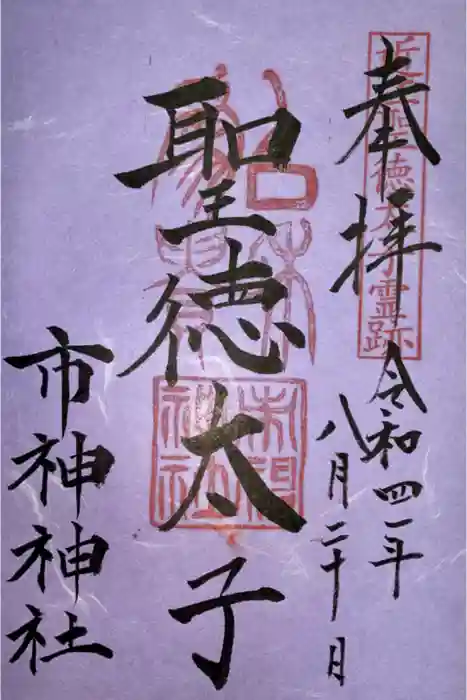 近江聖徳太子霊跡
奉拝
令和四年
八月二十日
聖徳太子
市神神社